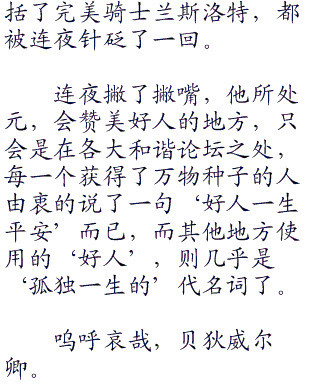 括了完美骑士兰斯洛特，都
被连夜针砭了一回。
连夜撇了撇嘴，他所处
元，会赞美好人的地方，只
会是在各大和谐论坛之处，
每一个获得了万物种子的人
由衷的说了一句‘好人一生
平安’而已，而其他地方使
用的‘好人’，则几乎是
‘孤独一生的’代名词了。
呜呼哀哉，贝狄威尔
卿。